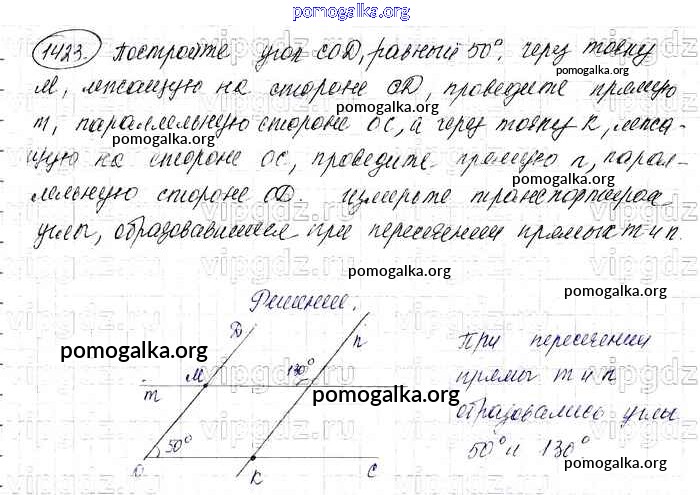 pomogalka.org
1423. Постройте угол COD, равный 50°. Через точку
pomogalka.org
M, лежащую на стороне OD, проведите прямую
pomogalka.org
m, параллельную стороне OC, а через точку K, лежа-
pomogalka.org
щую на стороне OC, проведите прямую n, парал-
pomogalka.org
лельную стороне OD. Измерьте транспортиром
углы, образовавшиеся при пересечении прямых m и n.
pomogalka.org
pomogalka.org
Решение.
D
n
При пересечении
pomogalka.org
M
130°
m
прямых m и n
pomogalka.org
образовались углы
50°
50° и 130°
pomogalka.org
O
K
C
pomogalka.org